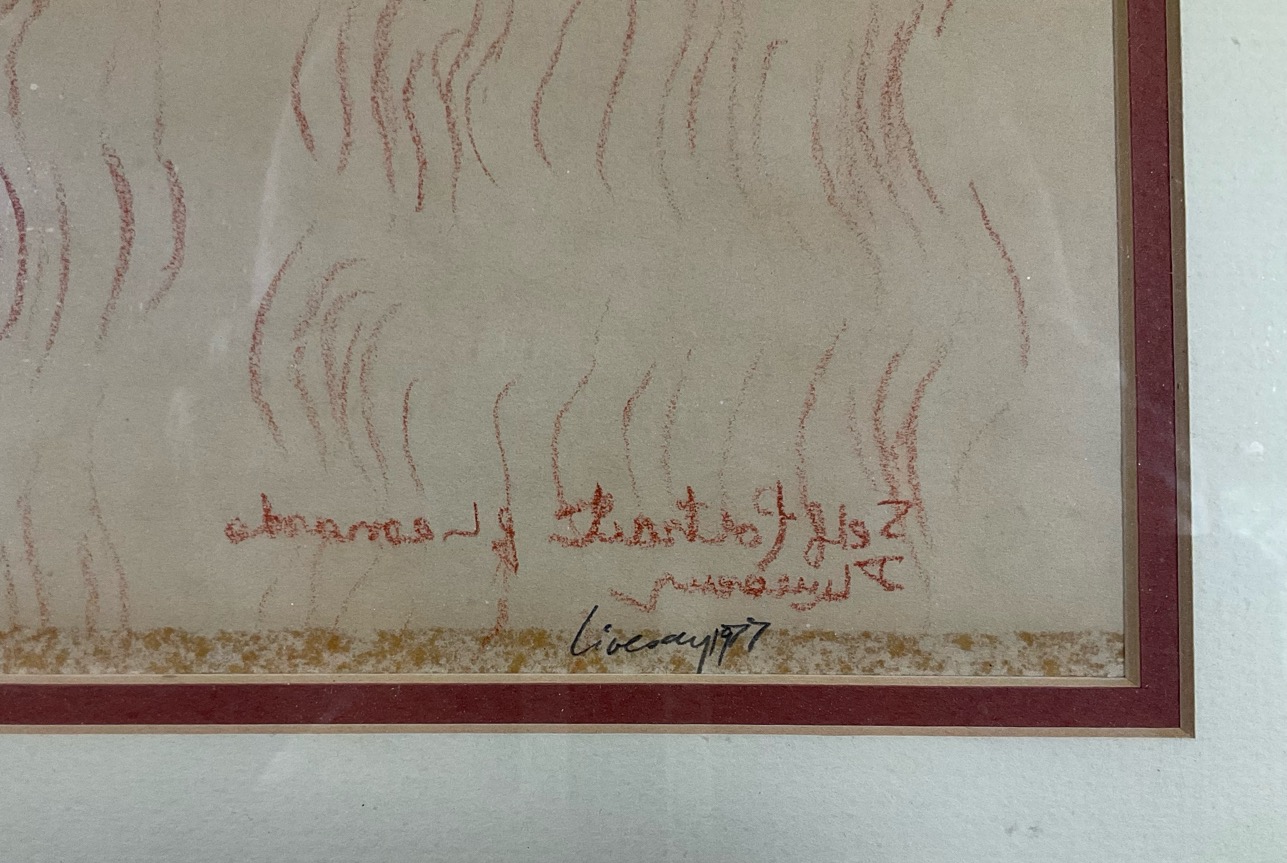 Self Portrait of Leonardo
Livesay 1977